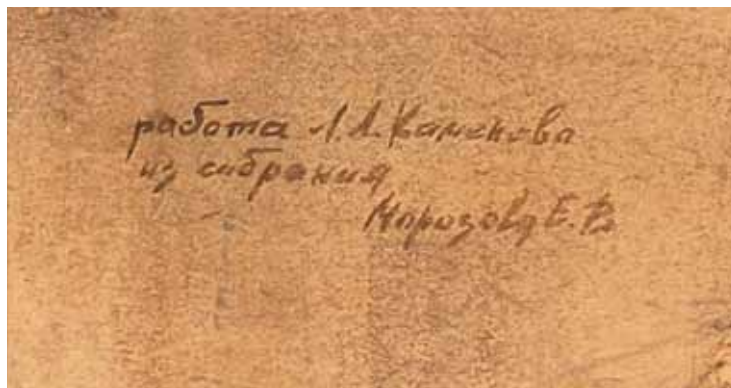 работа Л.Л.Каменева
из собрания
Морозова Е.В.